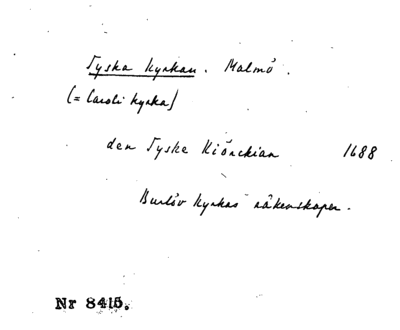 Tyska kyrkan. Malmö.
(= Caroli kyrka)
den Tyske Kiönckian 1688
Burlöv kyrkas räkenskaper.
Nr 8415.